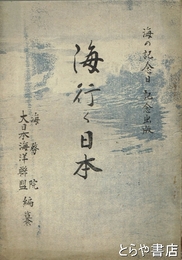 海の記念日記念出版
海行く日本
海務院
大日本海洋聯盟
編纂
とらや書店